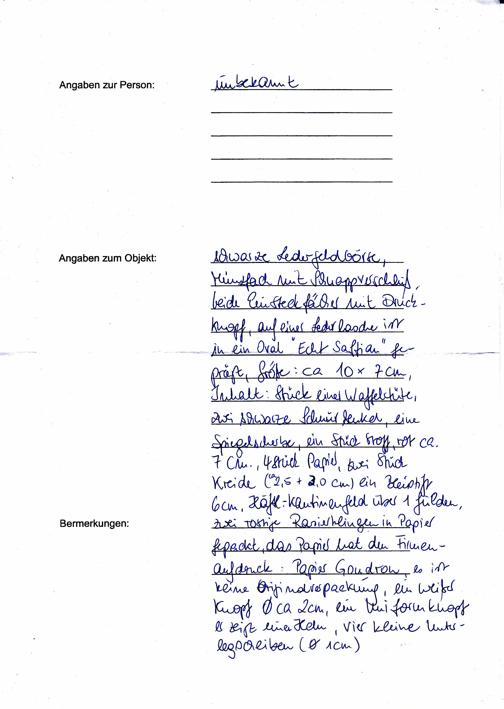 Angaben zur Person: unbekannt
Angaben zum Objekt: schwarze Ledergeldbörse,
Münzfach mit Schnappverschluß,
beide Einsteckfächer mit Druck-
knopf, auf einer Lederlasche ist
in ein Oval "Echt Saffian" ge-
prägt, Größe: ca 10 x 7 cm,
Inhalt: Stück einer Waffeltüte,
zwei schwarze Schnürsenkel, eine
Spiegelscherbe, ein Stück Stoff, rot ca.
7 cm., 4 Stück Papier, zwei Stück
Kreide (2,5 + 2,0 cm) ein Bleistift
6cm, Häftl.-Kantinengeld über 1 Gulden,
Bermerkungen: zwei rostige Rasierklingen in Papier
gepackt, das Papier hat den Firmen-
aufdruck: Papier Goudron, es ist
keine Originalverpackung, ein weißer
Knopf Ø ca 2cm, ein Uniformknopf
es zeigt einen Helm, vier kleine Unter-
legscheiben (Ø 1cm)